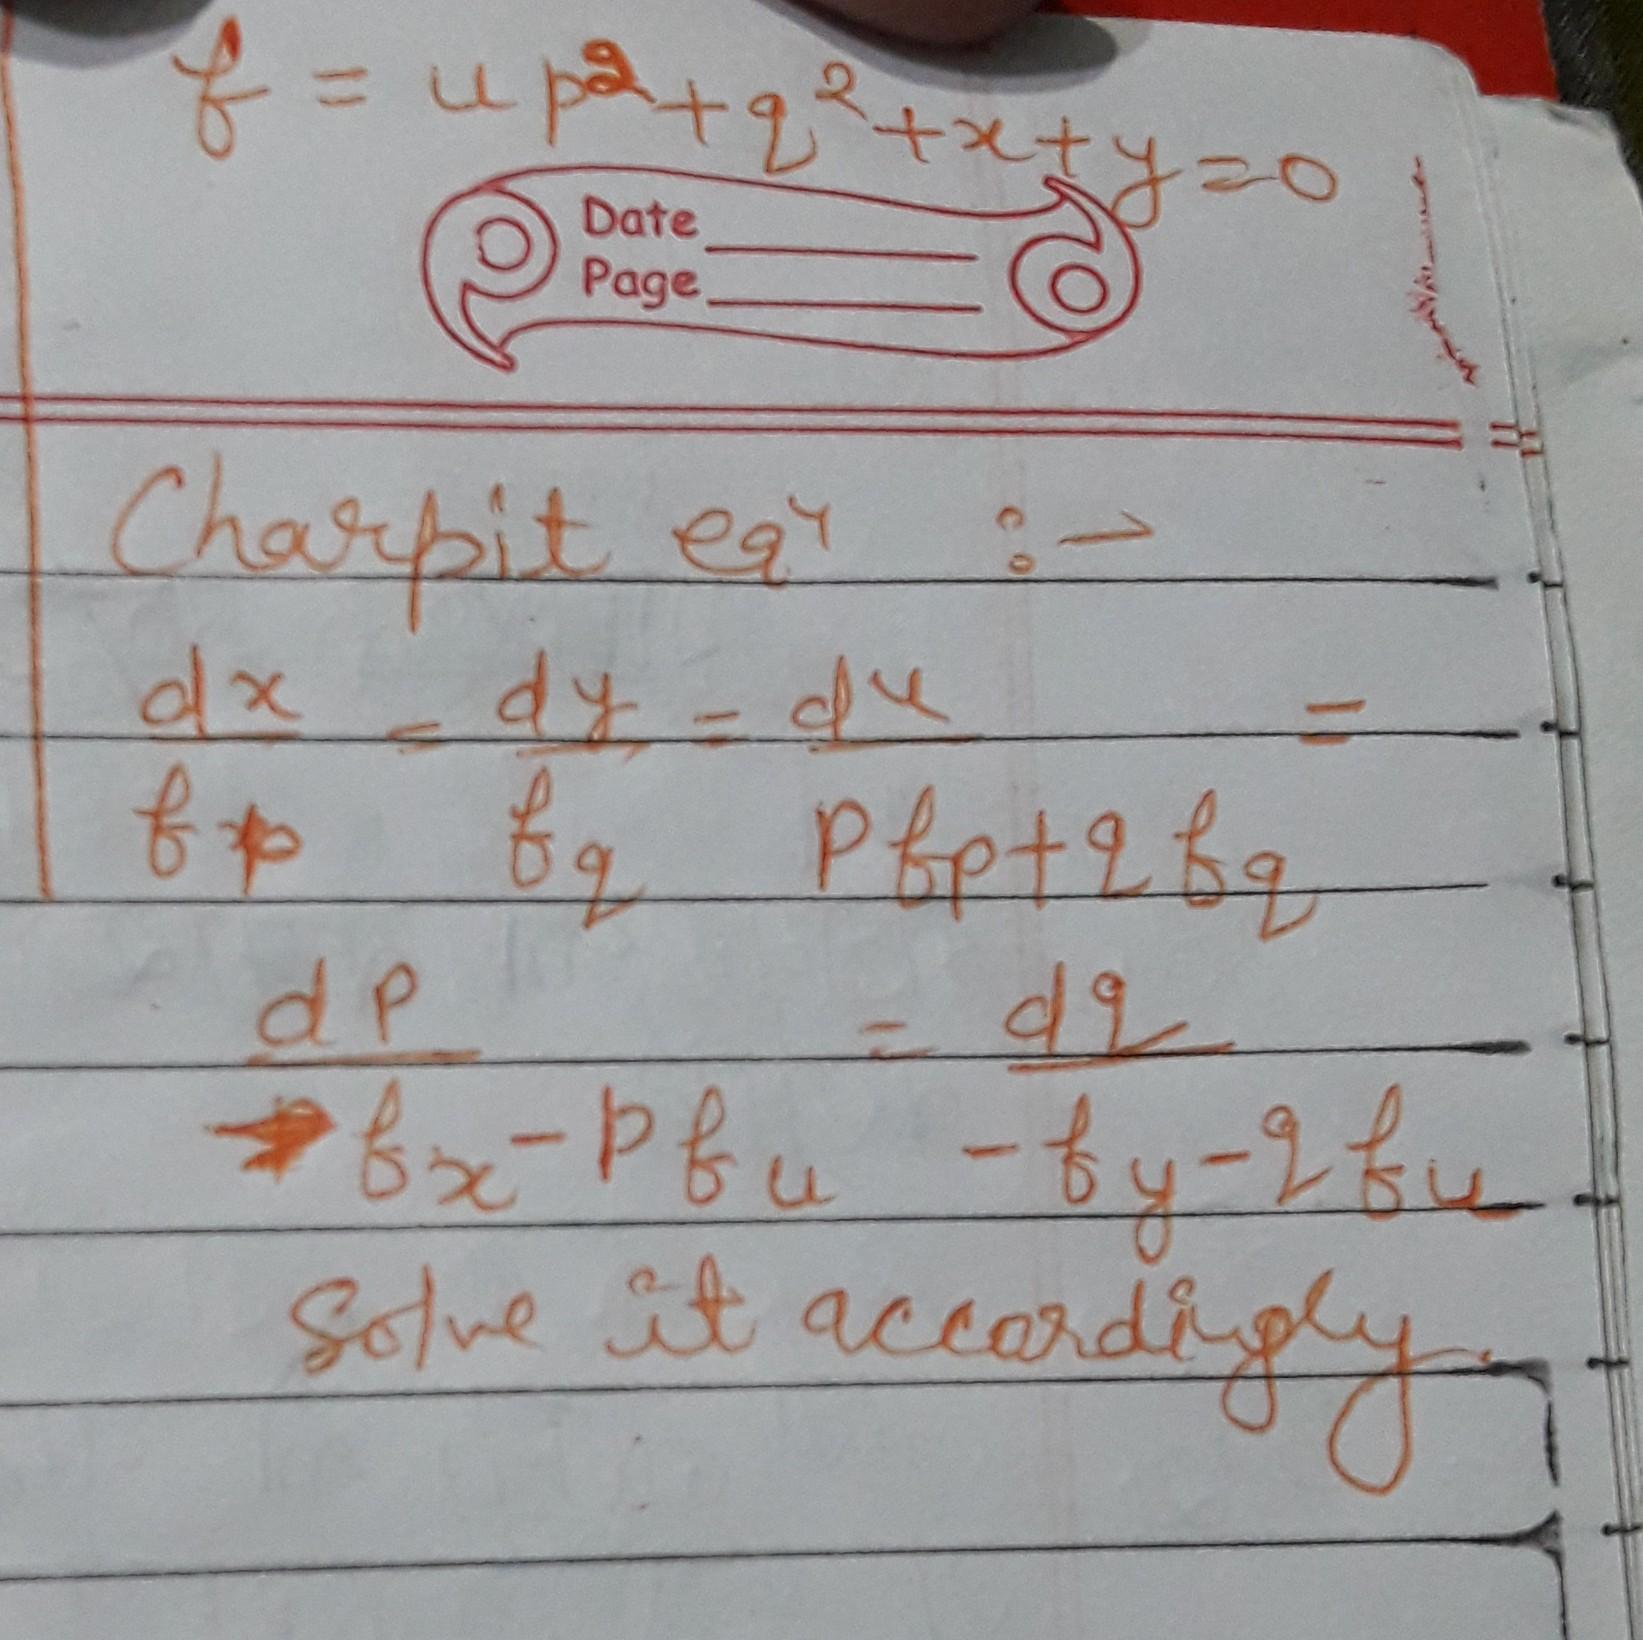 f = up²+q²+x+y=0
Date
Page
Charpit eqⁿ :→
dx/fp = dy/fq = du/pfp+qfq =
dp/-fx-pfu = dq/-fy-qfu
Solve it accordingly.